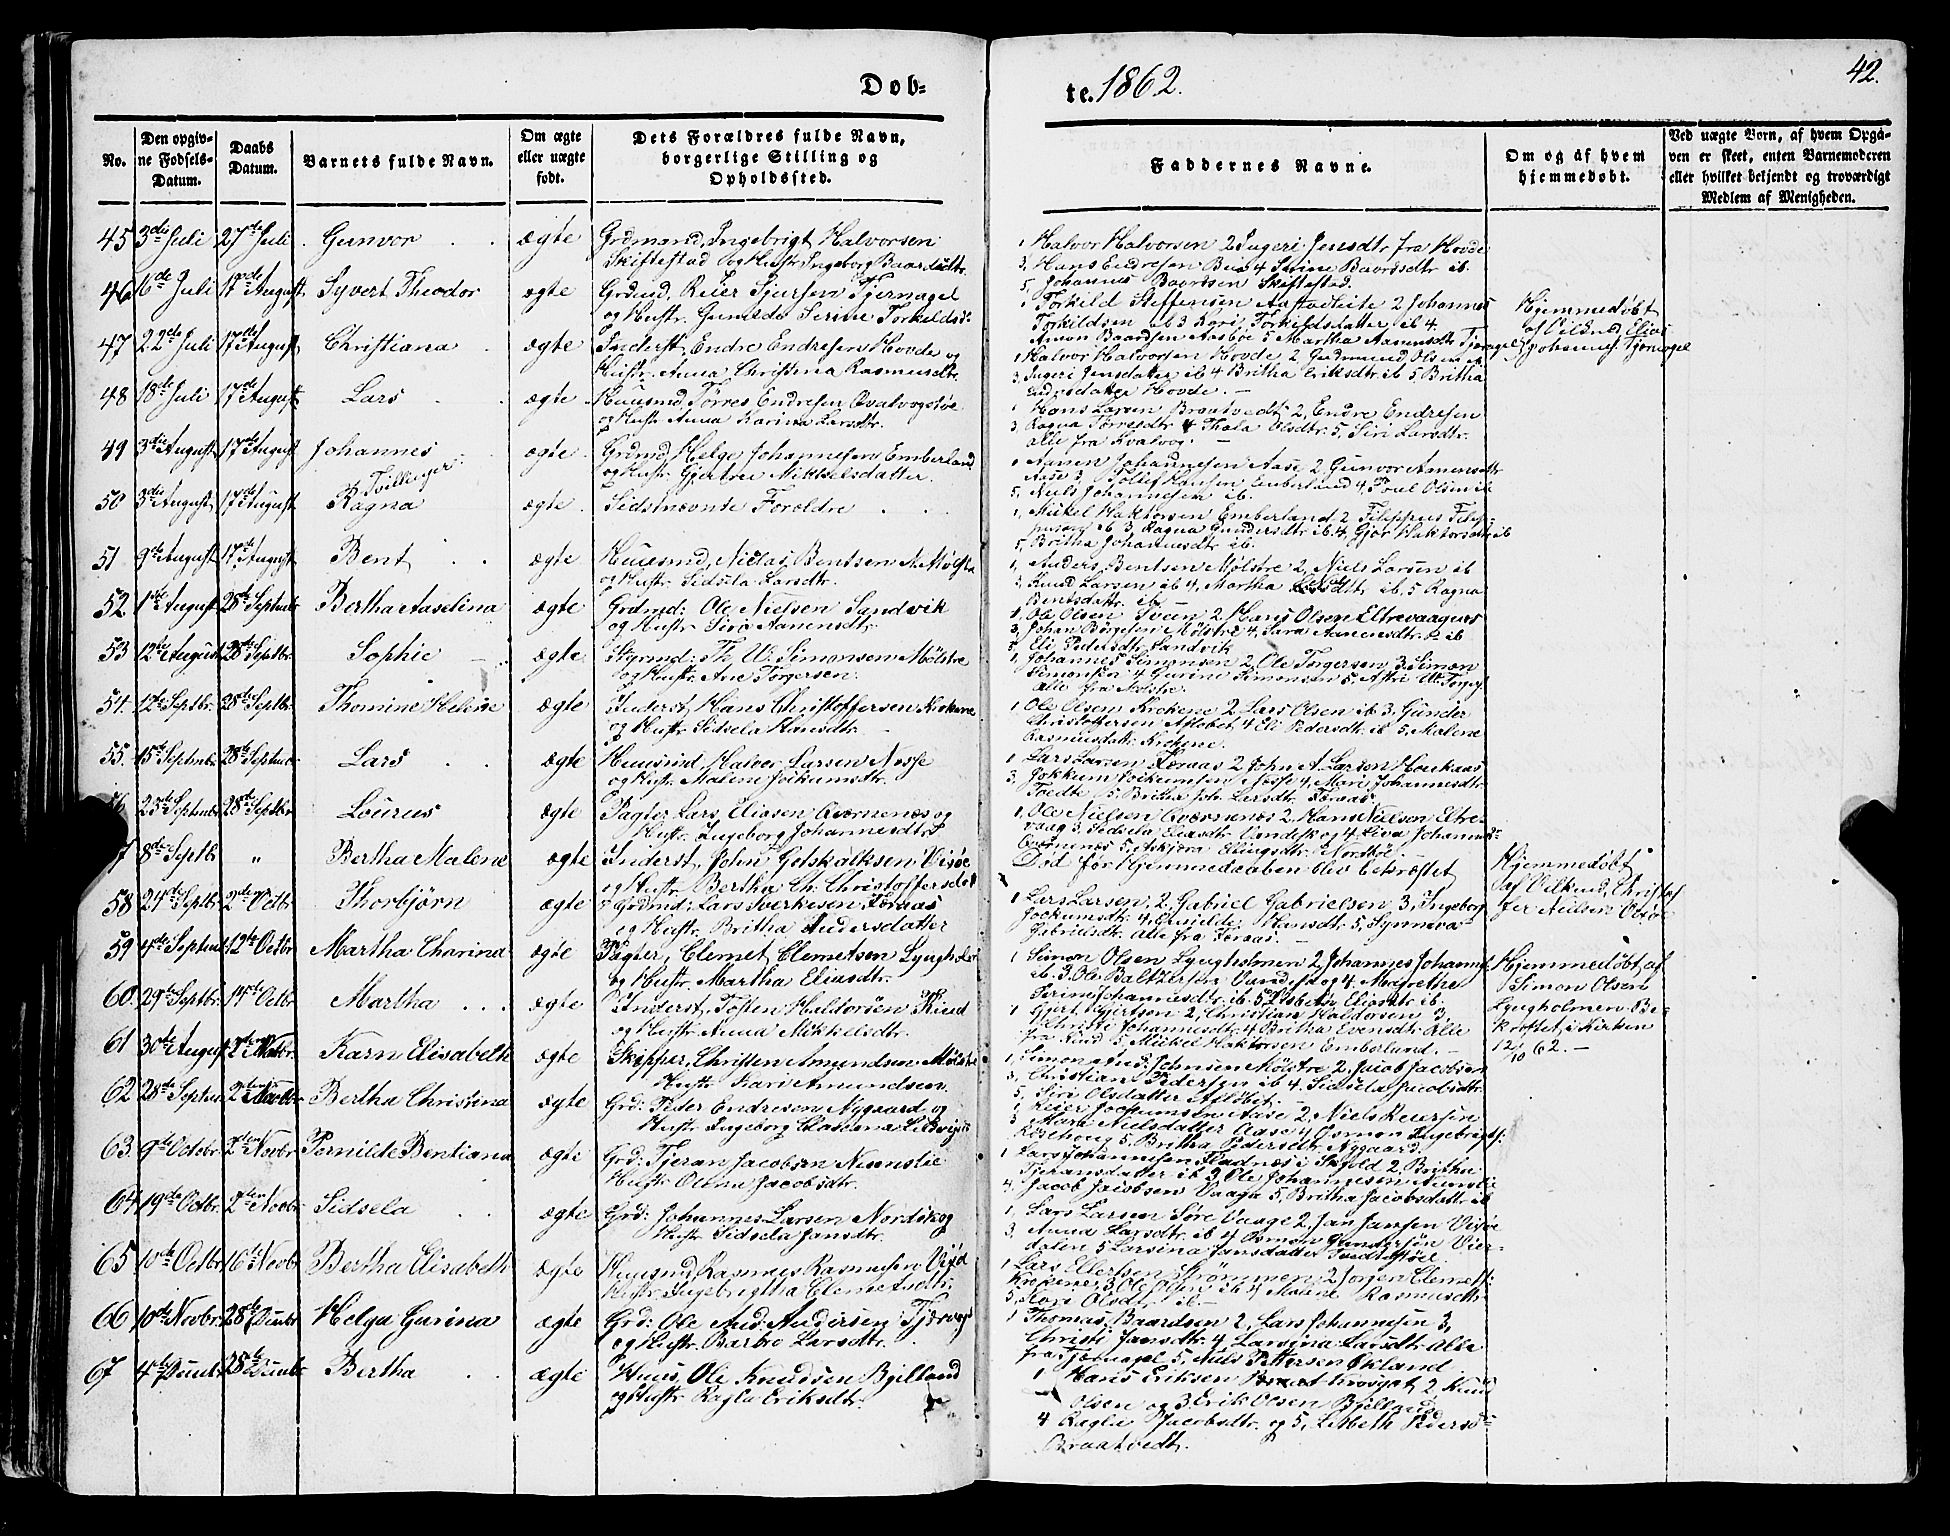 Døb-
te. 1862.
42.
No.
Den opgiv-
ne Fødsels-
Datum.
Daabs
Datum.
Barnets fulde Navn.
Om ægte
eller uægte
født.
Dets Forældres fulde Navn,
borgerlige Stilling og
Opholdssted.
Faddernes Navne.
Om og af hvem
hjemmedøbt.
Ved uægte Børn, af hvem Opgå-
ven er skeet, enten Barnemoderen
eller hvilket bekjendt og troværdigt
Medlem af Menigheden.
45 3die Juli 27de Juli Gunvor ægte Grdmand, Ingebrigt Halvorsen
Skiftestad og Hustr. Ingeborg Baardsdtr.
1, Halvor Halvorsen 2 Ingeri Jensdtr fra Hovde
3, Hans Endresen 4 Serine Baardsdtr ib.
5, Johannes Baardsen Skiftestad.
46 6de Juli 17de August Syvert Theodor ægte Grdmd, Reier Sjursen Tjernagel
og Hustr. Gunilde Serine Torkildsd.
1, Torkild Steffensen Aastadleite 2 Johannes
Torkildsen ib 3 Kari Torkildsdatter ib 4.
Amon Baardsen Aasbøe 5 Martha Aamundsdtr Tjernagel
Hjemmedøbt
af Vilknd Elias
Johannes. Tjernagel
47 22de Juli 17de August Christiana ægte Inderst Endre Endresen Hovde og
Hustr. Anna Christina Rasmusdtr.
1 Halvor Halvorsen Hovde 2 Gudmund Olsen ib
3, Ingeri Jensdatter ib 4 Britha Eriksdtr ib 5 Britha
Endresdatter Hovde.
48 18de Juli 17de August Lars ægte Huusmd Torres Endresen Qvalvogstøe
og Hustr Anna Karina Larsdtr.
1, Hans Larsen Braatvedt 2, Endre Endresen
3, Ragna Torresdtr 4 Thala Olsdtr. 5, Siri Larsdtr.
alle fra Kvalvog.
49 3die August 17de August Johannes ægte Grdmd, Helge Johannesen Emberland
og Hustr. Gjertrei Mikkelsdatter.
Aanen Johannesen Aase 2, Gunvor Aanensdtr
Aase 3, Tollef Hansen Emberland 4, Poul Olsen ib
5, Niels Johannesen ib.
Tvillinger
50 3die August 17de August Ragna ægte Sidstnævnte Forældre
1, Mikkel Haktorsen Emberland 2 Filippus Filip-
pusen ib 3 Ragna Gundersdtr ib. 4, Gjør Haktorsdtr ib
5, Britha Johannesdtr ib.
51 9de August 17de August Bent ægte Huusmd, Niclas Bentsen N. Mølstre
og Hustr. Sidsela Larsdtr.
1, Anders Bentsen Mølstre 2, Niels Larsen ib
3, Knud Larsen ib 4, Martha Larsdtr ib. 5 Ragna
Bentsdatter ib
52 1ste August 28de Septmbr Bertha Aaselina ægte Grdmd: Ole Nielsen Sandvik
og Hustr Siri Aanensdtr.
1, Ole Olsen Sveen 2, Hans Olsen Eltrevaagens
3, Johan Børgesen Mølstre 4, Sara Aanensdtr. ib
5, Eli Pedersdtr Sandvik
53 12te August 28de Septbr. Sophie ægte Styrmd: Th. U. Simonsen Mølstre
og Hustr. Ane Torgersen.
1, Johannes Simonsen 2, Ole Torgersen 3. Simon
Simonsen 4 Gurine Simonsen 5,
alle fra Mølstre.
54. 12te Septbr. 28de Septbr. Thomine Helene ægte Inderst, Hans Christoffersen Krokene
og Hustr Sidsela Hansdtr.
1, Ole Olsen Krokene 2 Lars Olsen ib 3. Gunder
Christoffersen Afløbet 4 Eli Pedersdtr ib 5, Malene
Rasmusdatr. Krokene.
55. 15de Septmbr. 28de Septmbr Lars ægte Huusmd, Halvor Larsen Nesse
og Hustr. Malene Joikumsdtr.
1, Lars Larsen Føraas 2 John A. Larsen Houkaas
3, Jokkum Joikumsen Nesse 4, Mari Johannesdtr.
Toedte 5, Britha Joh. Larsdtr. Føraas
56 23de Septmbr 28de Septbr Lourus ægte Pagter Lars Eliasen Qværnenæs og
Hustr. Ingeborg Johannesdtr.
1, Ole Nielsen Qværnenæs 2. Hans Nielsen Eltre-
vaag 3, Sidsela Eliasdtr. Vandskog 4. Liva Johannesd.
Qvernenes 5, Askjera Ellingsdtr. Nordbø.
7 8de Septbr " Bertha Malene ægte Inderst, John Gotskalksen Visøe
og Hustr. Bertha Ch. Christoffersdtr
Død før Hjemmedaaben blev bekræftet
Hjemmedøbt
af Vilknd, Christof
fer Nielsen Visøe
58 24de Septbr 2den Octbr. Thorbjørn ægte Grdmd: Lars Sverkesen Føraas
og Hustr. Britha Andersdatter
1 Lars Larsen, 2, Gabriel Gabrielsen 3, Ingeborg
Jockumsdtr. 4, Hansdtr. 5, Synneva
Gabrielsdtr. alle fra Føraas.
59 4de Septmbr 12te Octbr. Martha Charina ægte Pagter, Clemet Clemetsen Lyngholm
og Hustr. Martha Eliasdtr.
1 Simon Olsen Lyngholmen 2, Johannes Johannes.
ib. 3. Ole Baltzersen Vandskog 4 Magrethe
Serine Johannesdtr ib. 5 Lisbeth Eliasdtr ib.
Hjemmedøbt af
Simon Olsen
Lyngholmen Be-
kræftet i Kirken
12/10 62. —
60. 29de Septbr. 14de Octbr. Martha ægte Inderst, Tosten Haldorsen Rind
og Hustr. Anna Mikkelsdtr.
1, Gjert Gjertsen 2, Christian Haldorsen 3,
Christi Johannesdtr. 4, Britha Evensdtr. alle
fra Rind 5, Mikkel Haktorsen Emberland.
61 30te August 2den Novbr. Karn Elisabeth ægte Skipper, Christen Amundsen Mølstre
Hustr Kari Amundsen.
1, Simon Johnsen Mølstre 2, Jacob Jacobsen
3, Christian Pedersen ib 4. Sidsela Jacobsdtr.
5, Siri Olsdatter Afløbet.
62 28de Septmbr 2den Novbr. Bertha Christina ægte Grd: Peder Endresen Nygaard og
Hustr Ingeborg
1, Reier Jochumsen Aase 2, Niels Reiersen
3 Mari Nielsdatter Aase 4 Osmon Ingebrigts.
5, Britha Pedersdtr Nygaard.
63. 9de Octbr 2den Novbr Pernilde Bentiana ægte Grd: Tjeran Jacobsen Nunslie
Hustr. Olena Jacobsdtr.
1 Lars Johannesen Fladnæs i Skjold 2 Britha
Tjeransdatter ib 3 Ole Johannesen Nunslie
4, Jacob Jacobsen Vaaga 5, Britha Jacobsdatter ib
64 19de Octbr. 2den Novbr Sidsela ægte Grd: Johannes Larsen Nordskog
Hustr. Sidsela Jansdtr.
1, Lars Larsen Søre Vaage 2. Jan Jansen Visøe
3, Anna Larsdtr. ib 4 Osmon Gundersen Vier-
dalen 5 Larsina Jansdatter
65 10de Octbr. 16de Novbr Bertha Elisabeth ægte Huusmd Rasmus Rasmusen Visød
Hustr. Ingebrigtha Clemetsdtr.
1 Lars Ellertsen Strømmen 2 Jørgen Clemets.
Krokene, 3 Ole Olsen ib 4 Malene Rasmusdtr
5, Kari Olsdtr ib —
66 10de Novbr. 28de Decmbr Helga Gurina ægte Grd: Ole And: Andersen Tjernagel
og Hustr. Barbro Larsdtr.
1 Thomas Baardsen 2, Lars Johannesen 3,
Christi Jansdtr. 4 Larsina Larsdtr alle
fra Tjernagel 5, Niels Pettersen Økland
67 4de Decmbr 28de Decmbr Bertha ægte Huus, Ole Knudsen Bjelland
og Hustr. Ragla Eriksdtr.
1 Hans Eriksen 2 Knud
Olsen og 3 Erik Olsen Bjelland
4 Ragla Jacobsdtr. og 5, Lisbeth Pedersd.
Braatvedt.